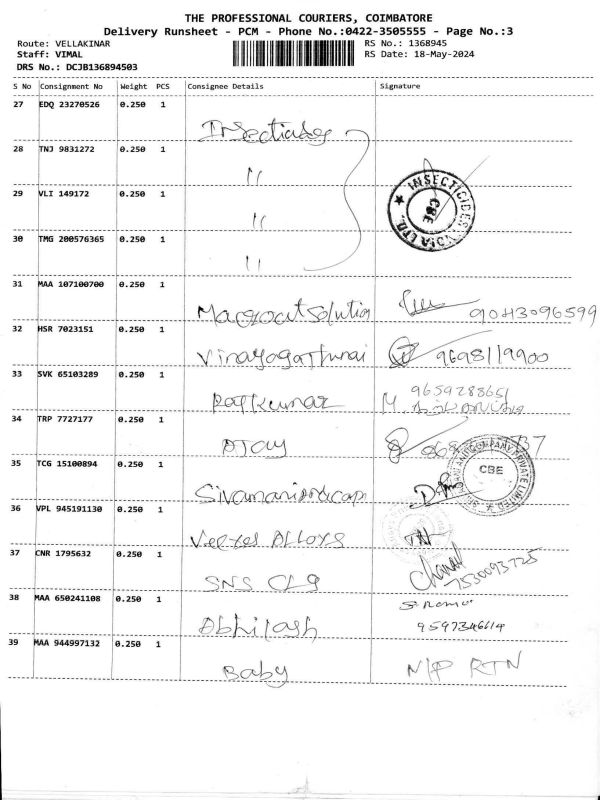 THE PROFESSIONAL COURIERS, COIMBATORE
Delivery Runsheet - PCM - Phone No.:0422-3505555 - Page No.:3
Route: VELLAKINAR
RS No.: 1368945
Staff: VIMAL
RS Date: 18-May-2024
DRS No.: DCJB136894503
S No Consignment No Weight PCS Consignee Details Signature
27 EDQ 23270526 0.250 1
28 TNJ 9831272 0.250 1 "
29 VLI 149172 0.250 1 "
INSECTICIDES INDIA LTD. CBE
30 TMG 200576365 0.250 1 "
31 MAA 107100700 0.250 1 9043096599
32 HSR 7023151 0.250 1 9698119900
33 SVK 65103289 0.250 1 Rajkumar M 9659288651
34 TRP 7727177 0.250 1 Ajay
35 TCG 15100894 0.250 1 CBE
36 VPL 945191130 0.250 1 Alloys
37 CNR 1795632 0.250 1 SNS 7530093725
38 MAA 650241108 0.250 1 Abhilash 9597346614
39 MAA 944997132 0.250 1 Baby N/P RTN